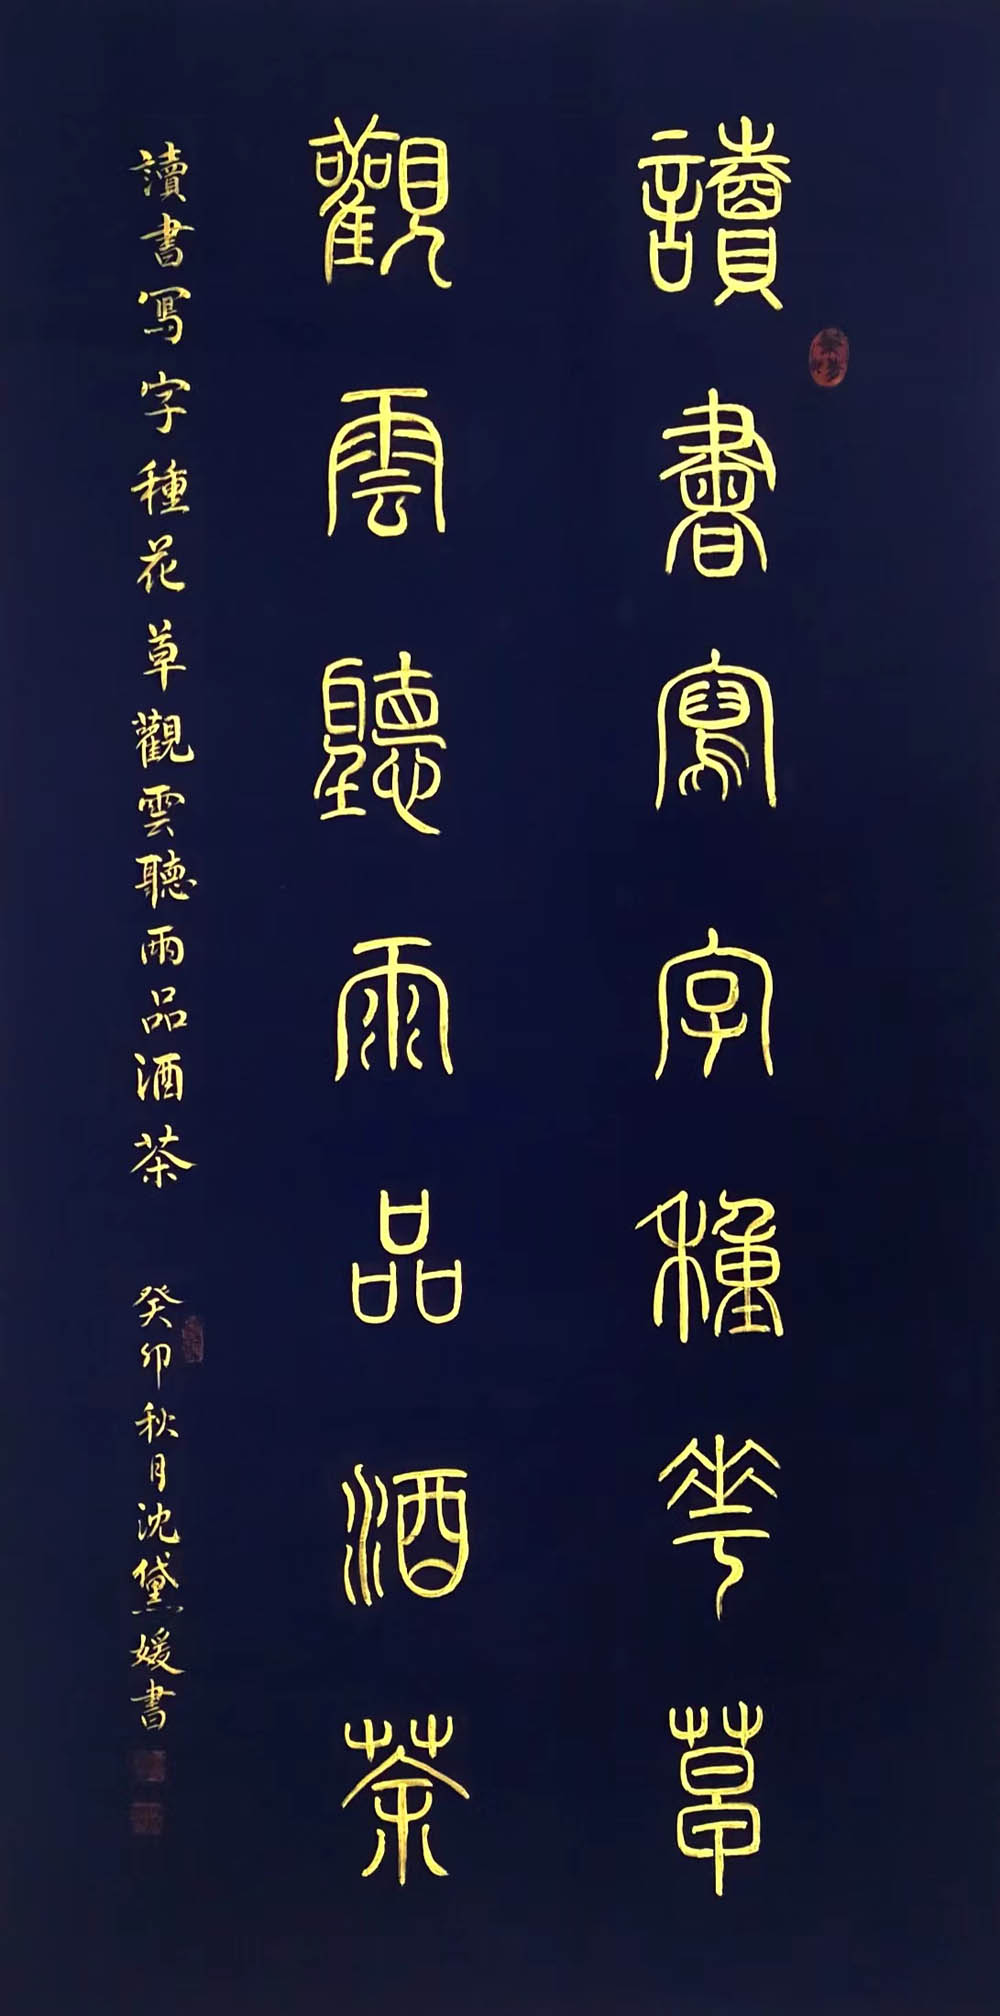 讀書寫字種花草
觀雲聽雨品酒茶
讀書寫字種花草觀雲聽雨品酒茶 癸卯秋月沈黛媛書